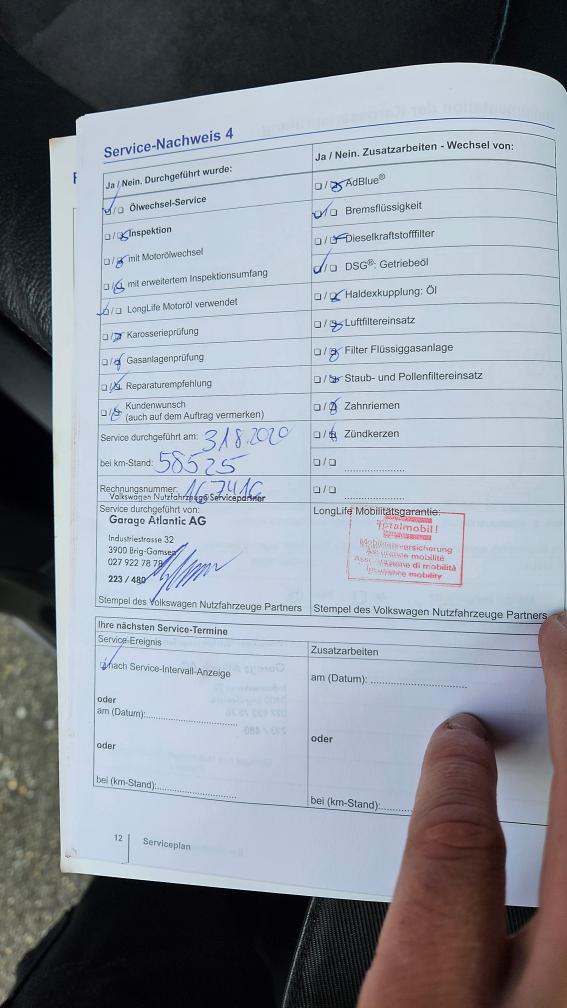 Service-Nachweis 4
Ja / Nein. Durchgeführt wurde:
☑/☐ Ölwechsel-Service
☐/☒ Inspektion
☐/☒ mit Motorölwechsel
☐/☒ mit erweitertem Inspektionsumfang
☑/☐ LongLife Motoröl verwendet
☐/☒ Karosserieprüfung
☐/☒ Gasanlagenprüfung
☐/☒ Reparaturempfehlung
☐/☒ Kundenwunsch
(auch auf dem Auftrag vermerken)
Service durchgeführt am: 31.8.2020
bei km-Stand: 58525
Rechnungsnummer: 167416
Volkswagen Nutzfahrzeuge Servicepartner
Service durchgeführt von:
Garage Atlantic AG
Industriestrasse 32
3900 Brig-Gamsen
027 922 78 78
223 / 480
Stempel des Volkswagen Nutzfahrzeuge Partners
Ja / Nein. Zusatzarbeiten - Wechsel von:
☐/☒ AdBlue®
☑/☐ Bremsflüssigkeit
☐/☒ Dieselkraftstofffilter
☑/☐ DSG®: Getriebeöl
☐/☒ Haldexkupplung: Öl
☐/☒ Luftfiltereinsatz
☐/☒ Filter Flüssiggasanlage
☐/☒ Staub- und Pollenfiltereinsatz
☐/☒ Zahnriemen
☐/☒ Zündkerzen
☐/☐ ....................
☐/☐ ....................
LongLife Mobilitätsgarantie:
Totalmobil!
Mobilitätsversicherung
Assurance mobilité
Assicurazione di mobilità
Insurance mobility
Stempel des Volkswagen Nutzfahrzeuge Partners
Ihre nächsten Service-Termine
Service-Ereignis
☑ nach Service-Intervall-Anzeige
oder
am (Datum):........................
oder
bei (km-Stand):.....................
Zusatzarbeiten
am (Datum): ........................
oder
bei (km-Stand):.........
12
Serviceplan